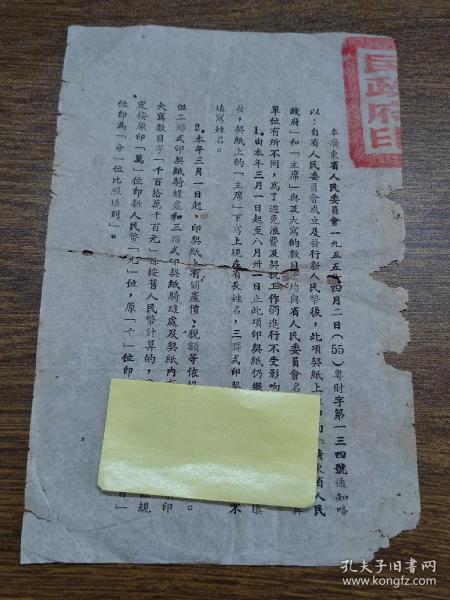 民政府印
奉廣東省人民委員會一九五五年四月二日(55)粤財字第一三四號通知略
以:自省人民委員會成立及發行新人民幣後,此項契紙上 「廣東省人民
政府」和「主席」與及大寫的數目 均與省人民委員會名
單位有所不同,爲了避免浪費及契税工作的進行不受影响
1.由本年三月一日起至八月卅一日止此項印契紙仍繼 填
發,契紙上的「主席」下寫上現任省長姓名,三聯式印契 不
填寫姓名。
2.本年三月一日起,印契紙上有關產價、税額等依規
但二聯式印契紙騎縫處和三聯式印契紙騎縫處及契紙内 印
大寫數目字「千百拾萬千百元」 按舊人民幣計算的, 規
定按原印「萬」位即新人民幣「元」位,原「千」位即 」
位即爲「分」位比照填列」。
孔夫子旧书网
www.kongfz.com